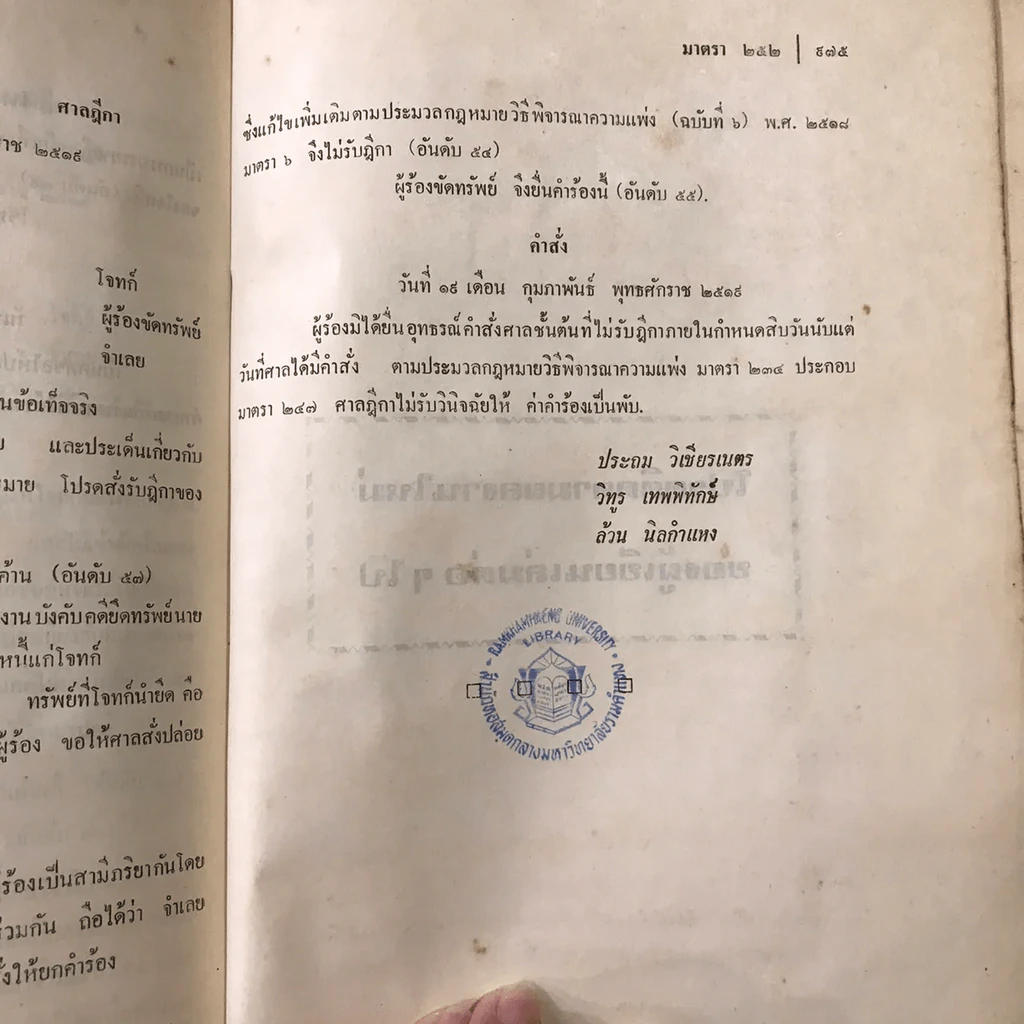 ศาลฎีกา
ราช ๒๕๑๙
โจทก์
ผู้ร้องขัดทรัพย์
จำเลย
นข้อเท็จจริง
และประเด็นเกี่ยวกับ
หมาย โปรดสั่งรับฎีกาของ
ค้าน (อันดับ ๕๗)
งานบังคับคดียึดทรัพย์นาย
หนี้แก่โจทก์
ทรัพย์ที่โจทก์นำยึด คือ
ผู้ร้อง ขอให้ศาลสั่งปล่อย
ร้องเป็นสามีภริยากันโดย
ร่วมกัน ถือได้ว่า จำเลย
ให้ยกคำร้อง
มาตรา ๒๕๒ | ๙๗๕
ซึ่งแก้ไขเพิ่มเติมตามประมวลกฎหมายวิธีพิจารณาความแพ่ง (ฉบับที่ ๖) พ.ศ. ๒๕๑๘
มาตรา ๖ จึงไม่รับฎีกา (อันดับ ๕๔)
ผู้ร้องขัดทรัพย์ จึงยื่นคำร้องนี้ (อันดับ ๕๕).
คำสั่ง
วันที่ ๑๙ เดือน กุมภาพันธ์ พุทธศักราช ๒๕๑๙
ผู้ร้องมิได้ยื่นอุทธรณ์คำสั่งศาลชั้นต้นที่ไม่รับฎีกาภายในกำหนดสิบวันนับแต่
วันที่ศาลได้มีคำสั่ง ตามประมวลกฎหมายวิธีพิจารณาความแพ่ง มาตรา ๒๓๔ ประกอบ
มาตรา ๒๔๗ ศาลฎีกาไม่รับวินิจฉัยให้ ค่าคำร้องเป็นพับ.
ประถม วิเชียรเนตร
วิทูร เทพพิทักษ์
ล้วน นิลกำแหง
RAMKHAMHAENG UNIVERSITY
LIBRARY
สำนักหอสมุดกลางมหาวิทยาลัยรามคำแหง